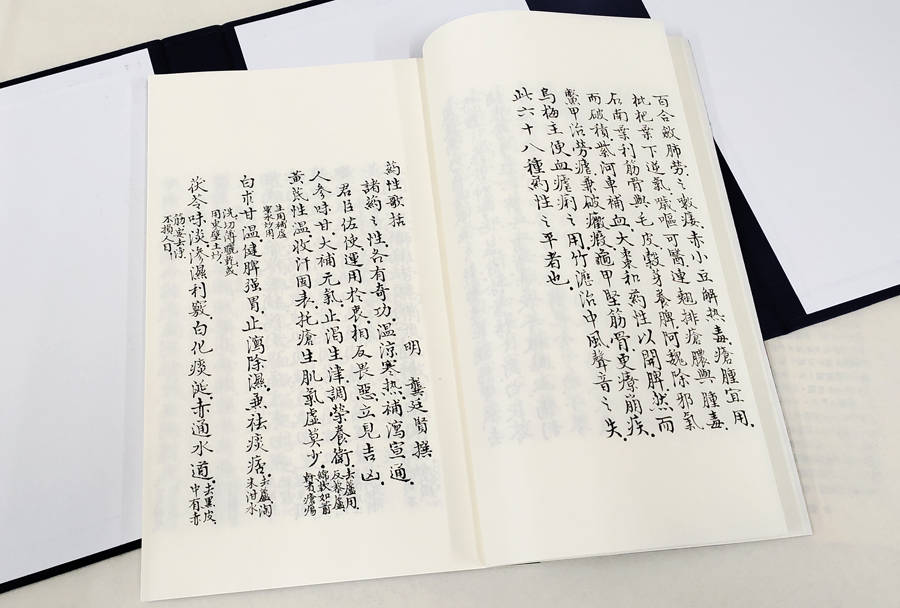 百合斂肺勞之嗽痿赤小豆解熱毒瘡腫宜用
枇杷葉下逆氣噦嘔可醫連翹排瘡膿與腫毒
石南葉利筋骨與毛皮穀芽養脾阿魏除邪氣
而破積紫河車補血大棗和药性以開脾然而
鱉甲治勞瘧兼破癥瘕龜甲堅筋骨更療崩疾
烏梅主便血瘧痢之用竹瀝治中風聲音之失
此六十八種药性之平者也
药性歌括 明 龔廷賢撰
諸药之性各有奇功溫涼寒熱補瀉宣通
君臣佐使運用於衷相反畏惡立見吉凶
人參味甘大補元氣止渴生津調榮養衛去蘆用反藜蘆
黃芪性溫收汗固表托瘡生肌氣虛莫少綿軟如箭幹者瘡瘍
生用補虛蜜水炒用
白朮甘溫健脾强胃止瀉除濕兼祛痰痞去蘆淘米泔水
洗切薄曬乾或用東壁土炒
茯苓味淡滲濕利竅白化痰涎赤通水道去黑皮中有赤
筋要去淨不損人目